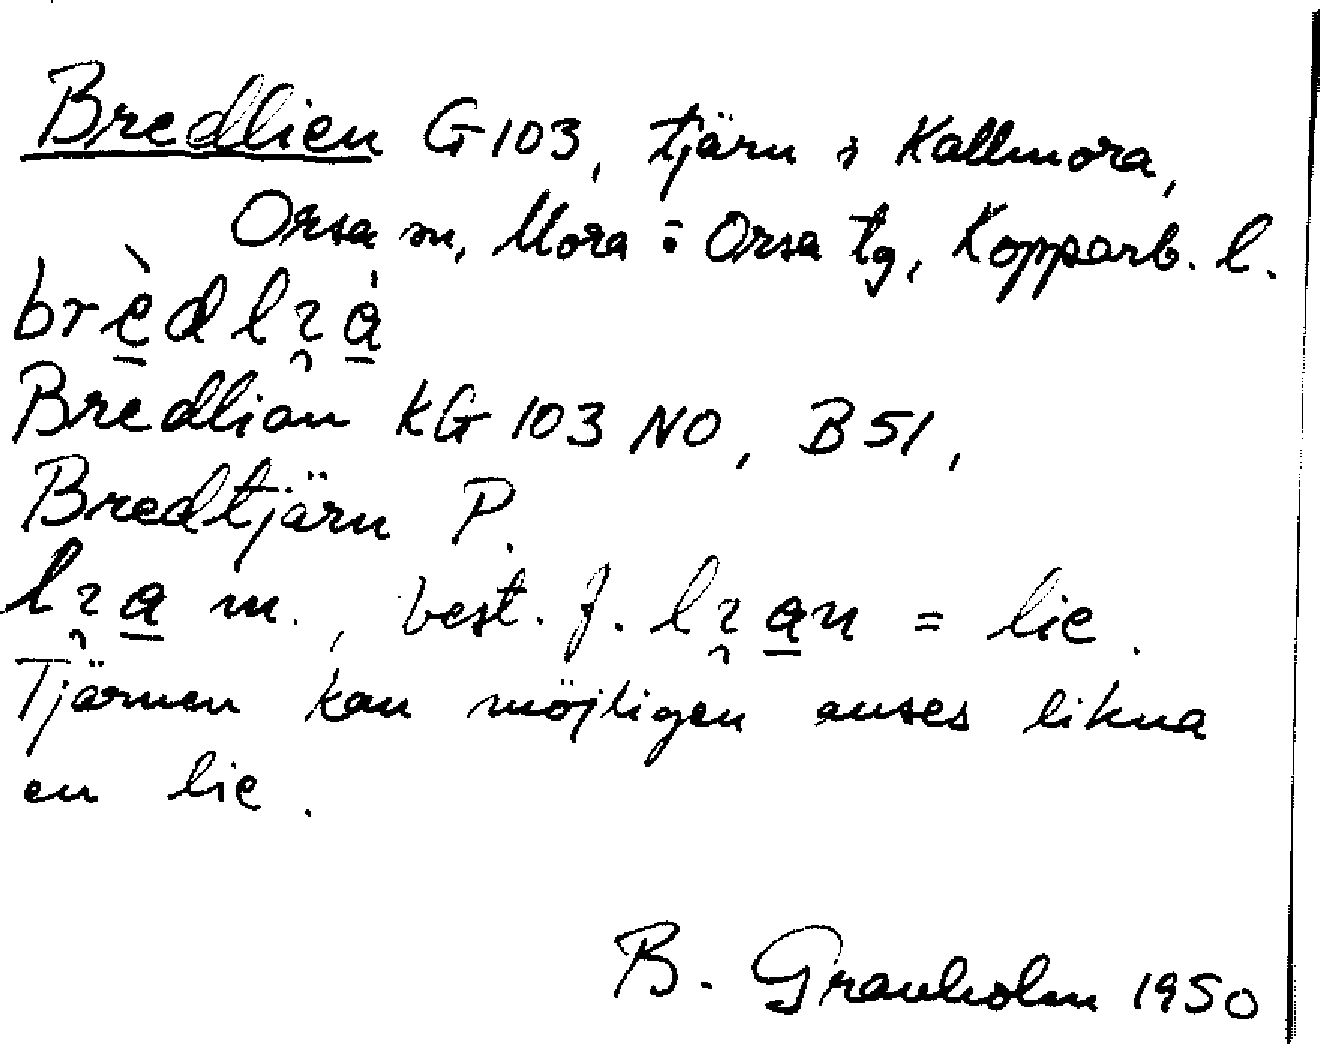 Bredlien G103, tjärn i Kallmora,
Orsa sn, Mora o Orsa tg, Kopparb. l.
Bredlian KG 103 NO, B51,
Bredtjärn P.
m., best. f. = lie.
Tjärnen kan möjligen anses likna
en lie.
B. Granholm 1950